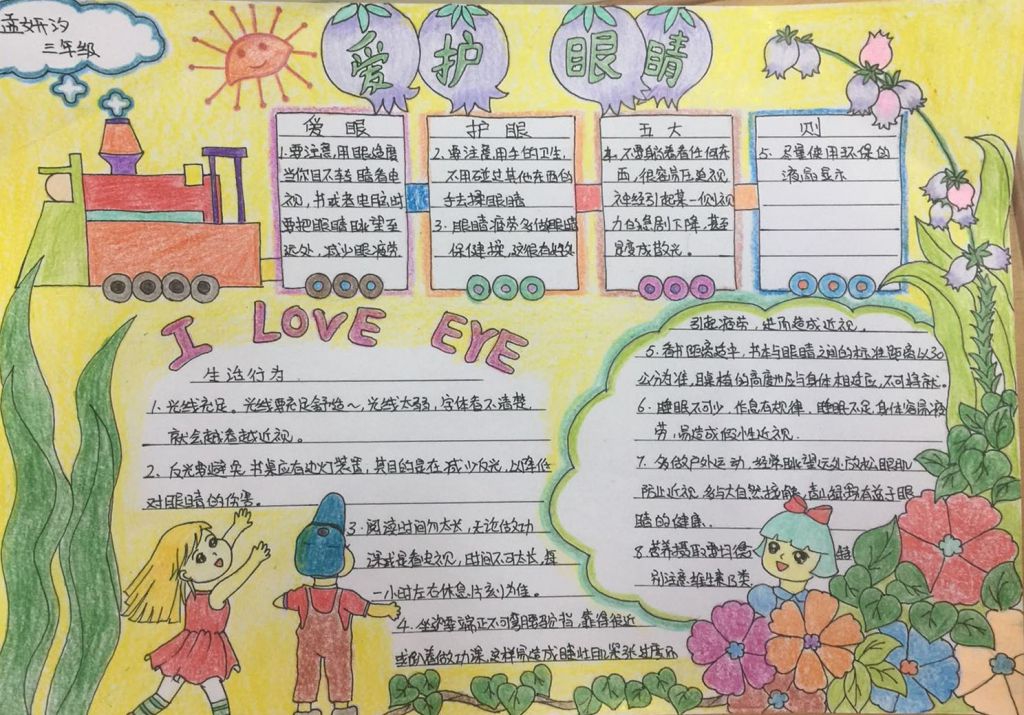 孟妍汐
三年级
爱护眼睛
爱眼
护眼
五大
则
1.要注意,用眼适度
当你目不转睛看电
视,书或者电脑时
要把眼睛眺望至
远处,减少眼疲劳
2.要注意用手的卫生,
不用碰过其他东西的
手去揉眼睛
3.眼睛疲劳多做眼睛
保健操,这很有好处
4.不要躺着看任何东
西,很容易压迫视
神经引起某一侧视
力的急剧下降,甚至
度成散光。
5.尽量使用环保的
液晶显示
I LOVE EYE
生活行为
1.光线充足。光线要充足舒适~,光线太弱,字体看不清楚
就会越看越近视。
2.反光要避免.书桌应有边灯装置,其目的意在减少反光,以降低
对眼睛的伤害。
3.阅读时间勿太长,无论做功
课或是看电视,时间不可太长,每
一小时左右休息片刻为佳。
4.坐姿要端正不可弯腰驼背,靠得很近
或趴着做功课,这样易造成睫壮肌紧张过度不
引起疲劳,进而造成近视。
5.看书距离适中,书本与眼睛之间的标准距离以30
公分为准,且桌椅的高度也应与身体相适应,不可将就。
6.睡眠不可少,作息有规律.睡眠不足身体容易疲
劳,易造成假性近视.
7.多做户外运动,经常眺望远处放松眼肌
防止近视,多与大自然接触,青山绿野有益于眼
睛的健康.
8.营养摄取要均衡 特
别注意维生素B类